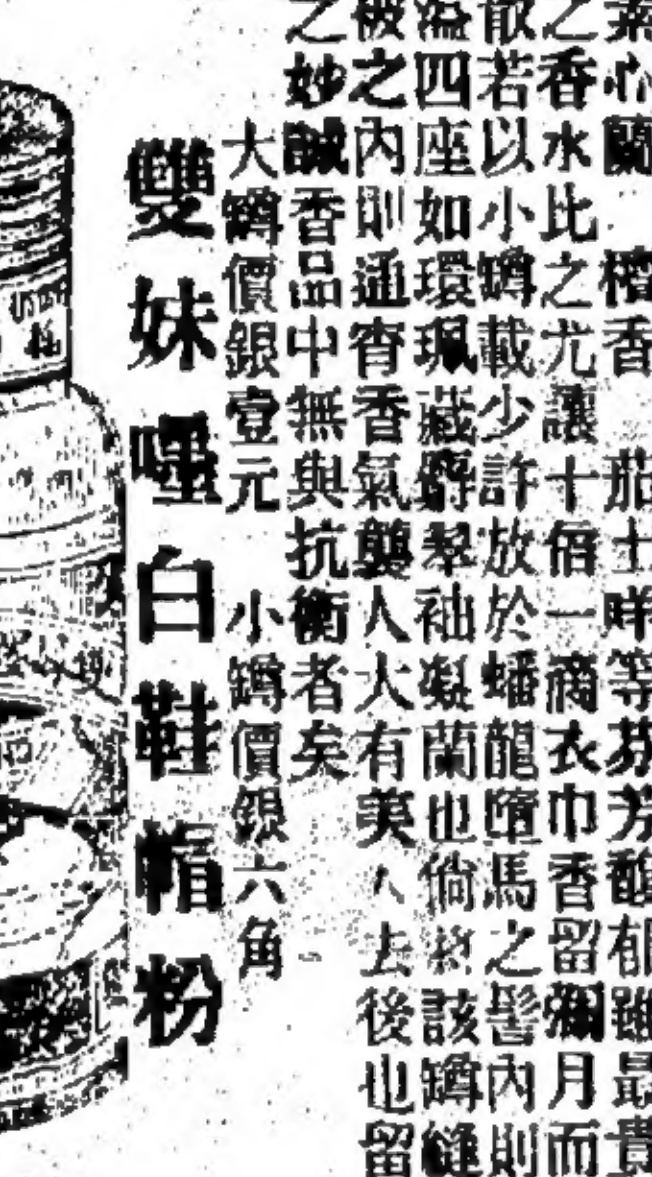 素心蘭 檀香 茄士咩等芬芳馥郁雖最貴
之香水比之尤讓十倍一滴衣巾香留彌月而
散若以小罇載少許放於蟠龍墮馬之髻內則
溢四座如環珮藏翠袖凝蘭也倘將該罇縫
被之內則通宵香氣襲人大有美人去後也留
之妙誠香品中無與抗衡者矣
大罇價銀壹元 小罇價銀六角
雙妹嘜白鞋帽粉